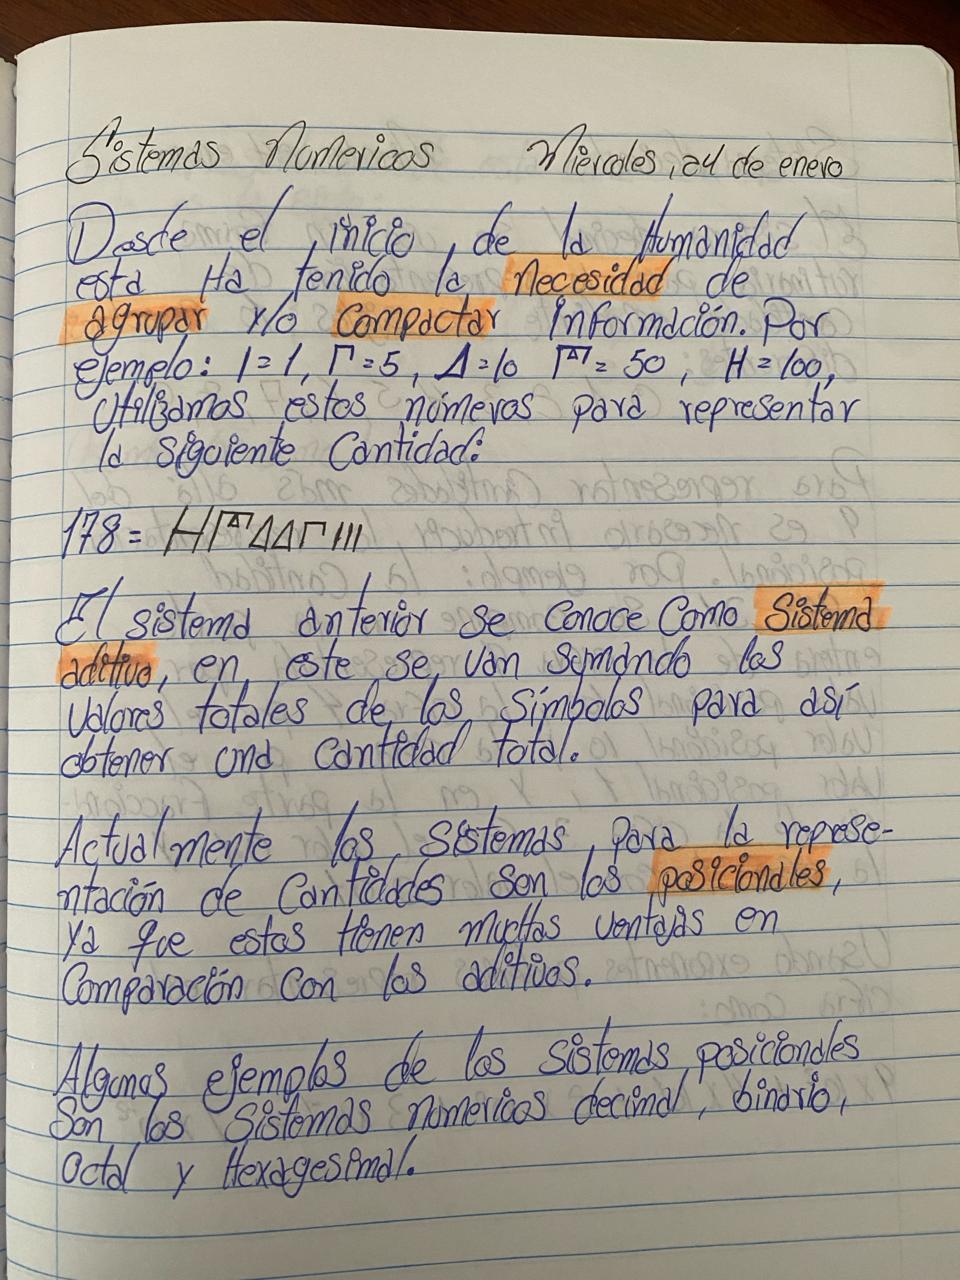 Sistemas Numericos Miércoles, 24 de enero
Desde el inicio de la Humanidad
esta Ha tenido la necesidad de
agrupar y/o Compactar información. Por
ejemplo: I=1, Γ=5, Δ=10 𐅄=50, H=100,
Utilizamos estos números para representar
la siguiente Cantidad:
178= H𐅄ΔΔΓIII
El sistema anterior se conoce Como Sistema
aditivo, en este se van sumando los
valores totales de los símbolos para así
obtener una cantidad total.
Actualmente los sistemas para la represe-
ntación de Cantidades son los posicionales,
ya que estos tienen muchas ventajas en
Comparación con los aditivos.
Algunos ejemplos de los sistemas posicionales
Son los sistemas numericos decimal, binario,
Octal y Hexagesimal.